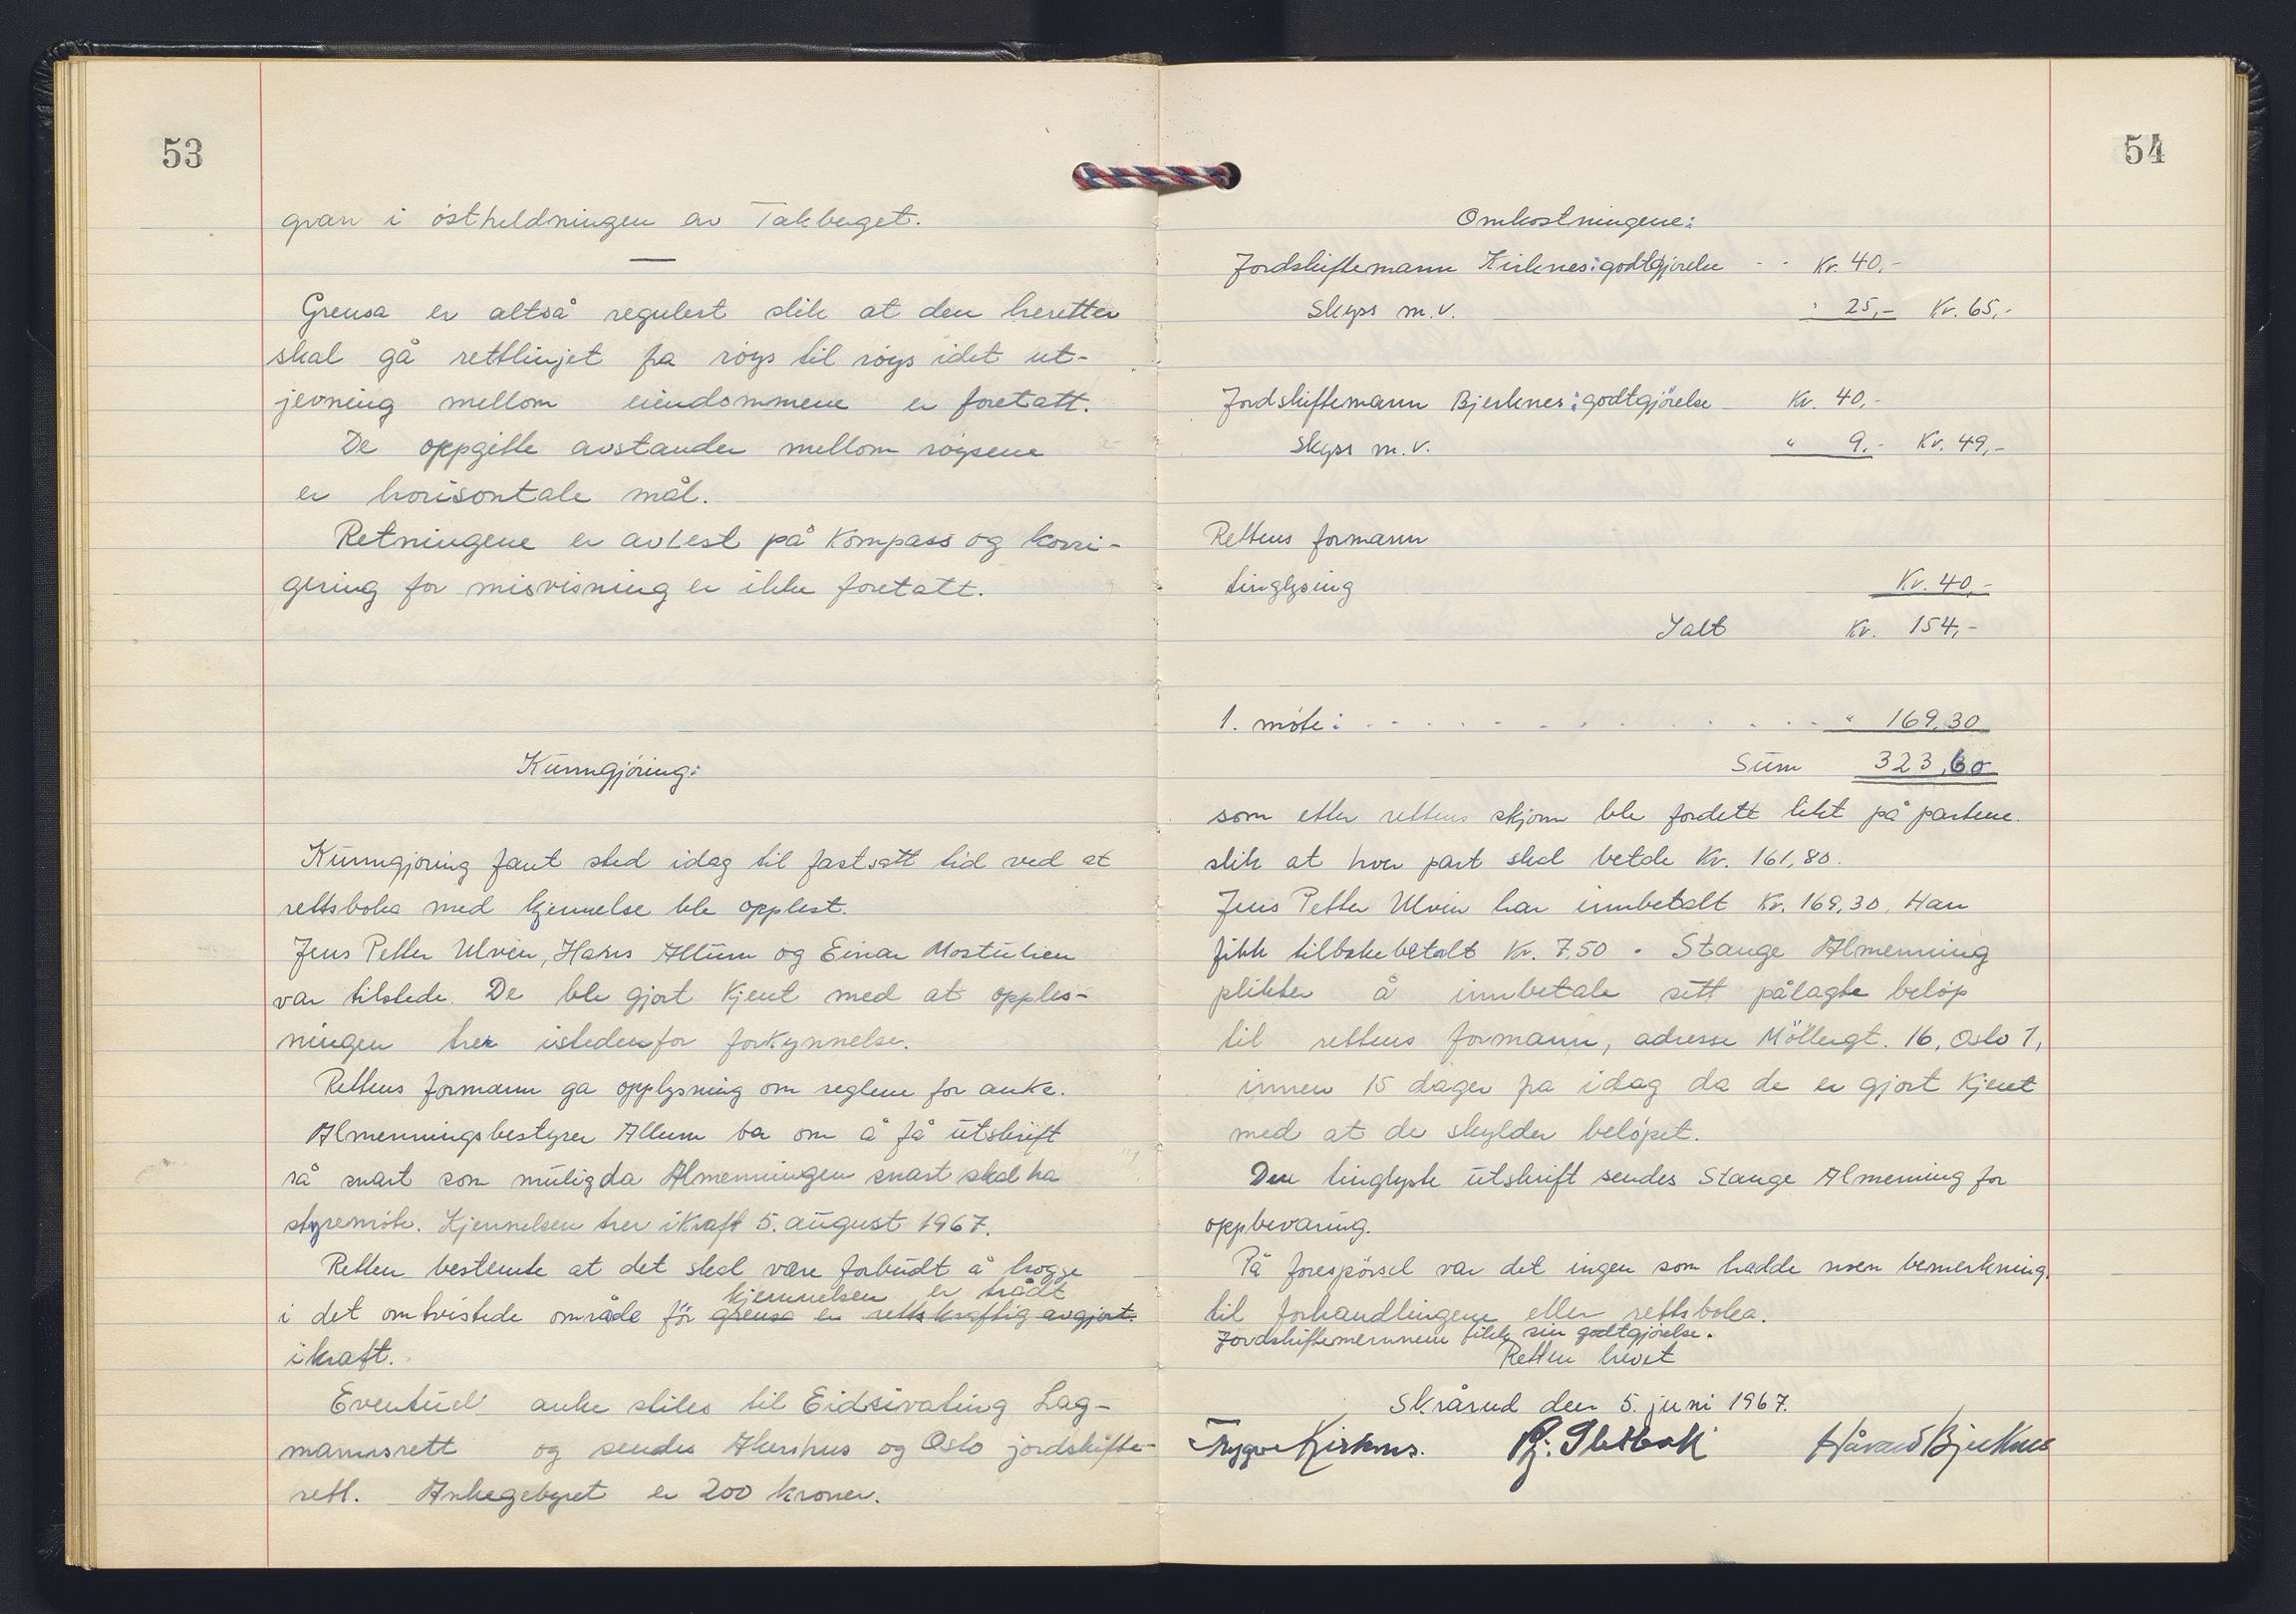 53
gran i östheldningen av Takberget.
Grensa er altså regulert slik at den heretter
skal gå rettlinjet fra röys til röys idet ut-
jevning mellom eiendommene er foretatt.
De oppgitte avstander mellom röysene
er horisontale mål.
Retningene er avlest på kompass og korri-
gering for misvisning er ikke foretatt.
Kunngjöring:
Kunngjöring fant sted idag til fastsatt tid ved at
rettsboka med kjennelse ble opplest.
Jens Petter Ulven, Hans Allum og Einar Mostulien
var tilstede. De ble gjort kjent med at opples-
ningen trer istedenfor forkynnelse.
Rettens formann ga opplysning om reglene for anke.
Almenningsbestyrer Allum ba om å få utskrift
så snart som mulig da Almenningen snart skal ha
styremöte. Kjennelsen trer i kraft 5. august 1967.
Retten bestemte at det skal være forbudt å hogge
kjennelsen er trådt
i det omtvistede område för grensa er rettskraftig avgjort.
i kraft.
Eventuell anke stiles til Eidsivating Lag-
mannsrett og sendes Akershus og Oslo jordskifte-
rett. Ankegebyret er 200 kroner.
54
Omkostningene:
Jordskiftemann Kirknes: godtgjörelse - - Kr. 40,-
Skyss m.v. " 25,- Kr. 65,-
Jordskiftemann Bjerknes: godtgjörelse Kr. 40,-
Skyss m.v. " 9,- Kr. 49,-
Rettens formann
tinglysing Kr. 40,-
Ialt Kr. 154,-
1. möte: . . . . . . . . . . . . " 169,30
Sum 323,60
som etter rettens skjönn ble fordelt likt på partene.
slik at hver part skal betale Kr. 161,80.
Jens Petter Ulven har innbetalt Kr. 169,30. Han
fikk tilbakebetalt Kr. 7,50. Stange Almenning
plikter å innbetale sitt pålagte belöp
til rettens formann, adresse Möllergt. 16, Oslo 1,
innen 15 dager fra idag da de er gjort kjent
med at de skylder belöpet.
Den tinglyste utskrift sendes Stange Almenning for
oppbevaring.
På forespörsel var det ingen som hadde noen bemerkning.
til forhandlingene eller rettsboka.
Jordskiftemennene fikk sin godtgjörelse.
Retten hevet
Skårud den 5. juni 1967.
Trygve Kirknes. Håvard Bjerknes